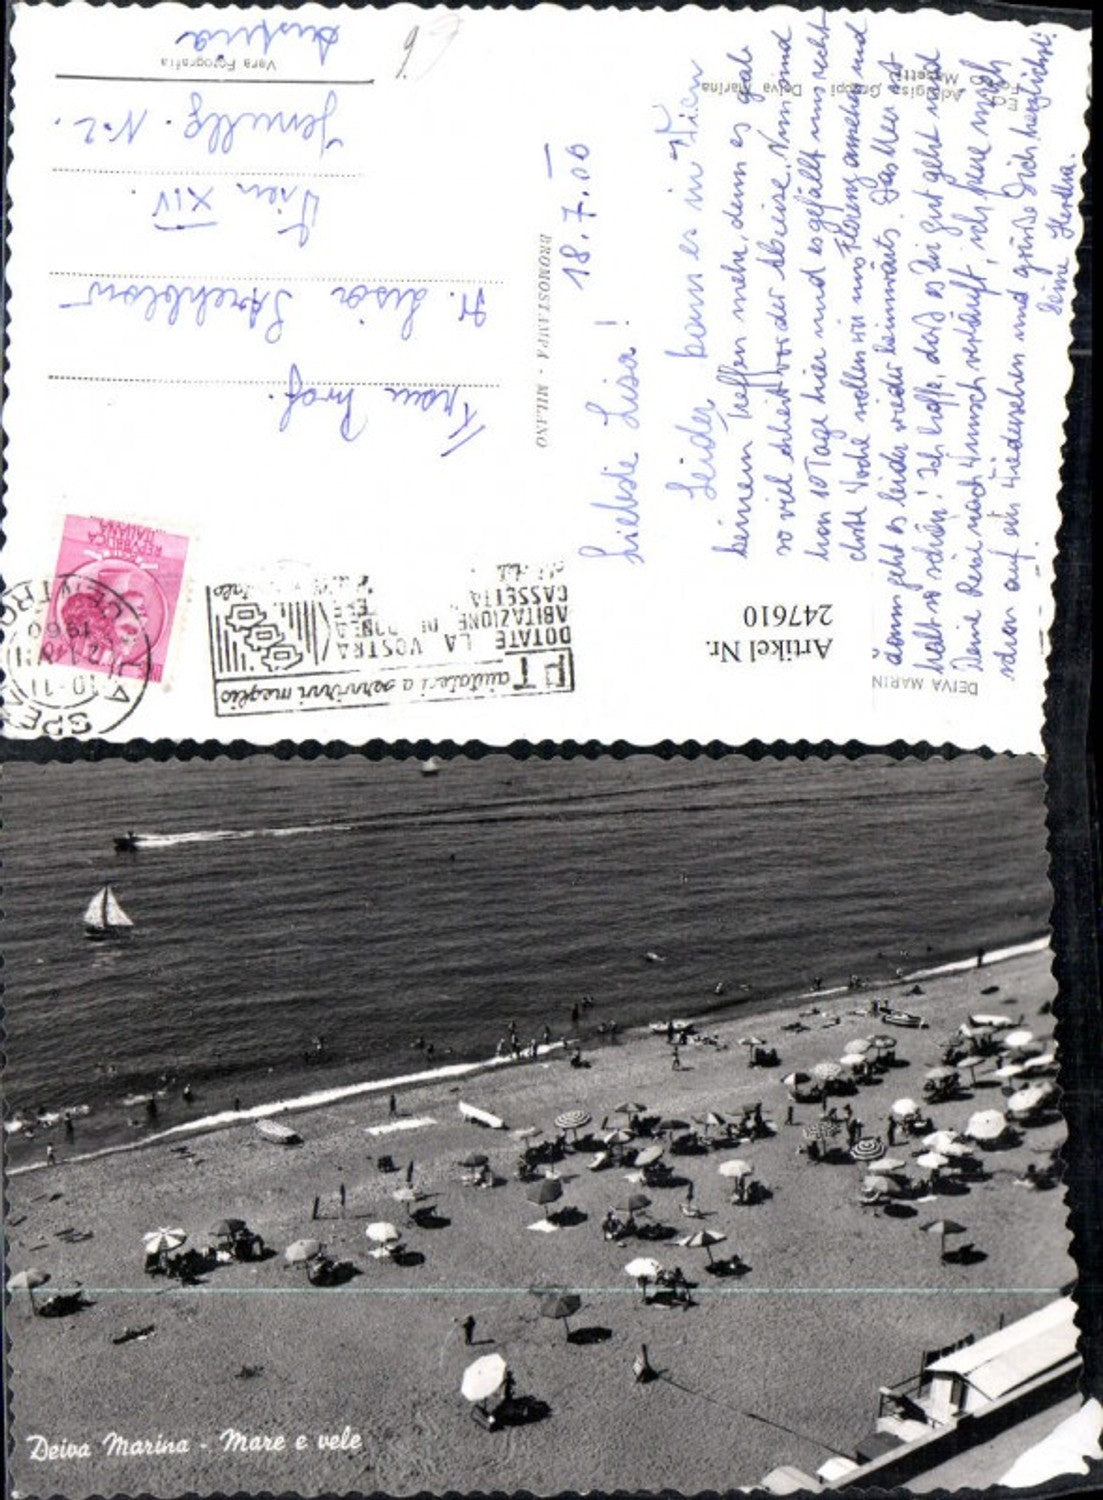 DEIVA MARIN
Artikel Nr.
247610
Adalgisa Groppi Deiva Marina
BROMOSTAMPA - MILANO
Vera Fotografia
REPUBBLICA
ITALIANA
SPE
CENTRO
10-11
1960
aiutateci a servirvi meglio
DOTATE LA VOSTRA
ABITAZIONE DI
CASSETTA
18.7.60
Liebste Lisa!
Leider kam es in Wien
keinem Treffen mehr, denn es gab
so viel Arbeit vor der Abreise. Wir sind
schon 10 Tage hier und es gefällt uns recht
Woche wollen wir uns Florenz ansehen und
dann geht es leider wieder heimwärts. Das Meer ist
halt so schön! Ich hoffe, daß es Dir gut geht und
Deine Reise nach Wunsch verläuft, ich freue mich
schon auf ein Wiedersehen und grüße Dich herzlichst:
Deine Hertha.
Frau Prof.
Lisa
Wien XIV.
N. 2.
Austria
Deiva Marina - Mare e vele